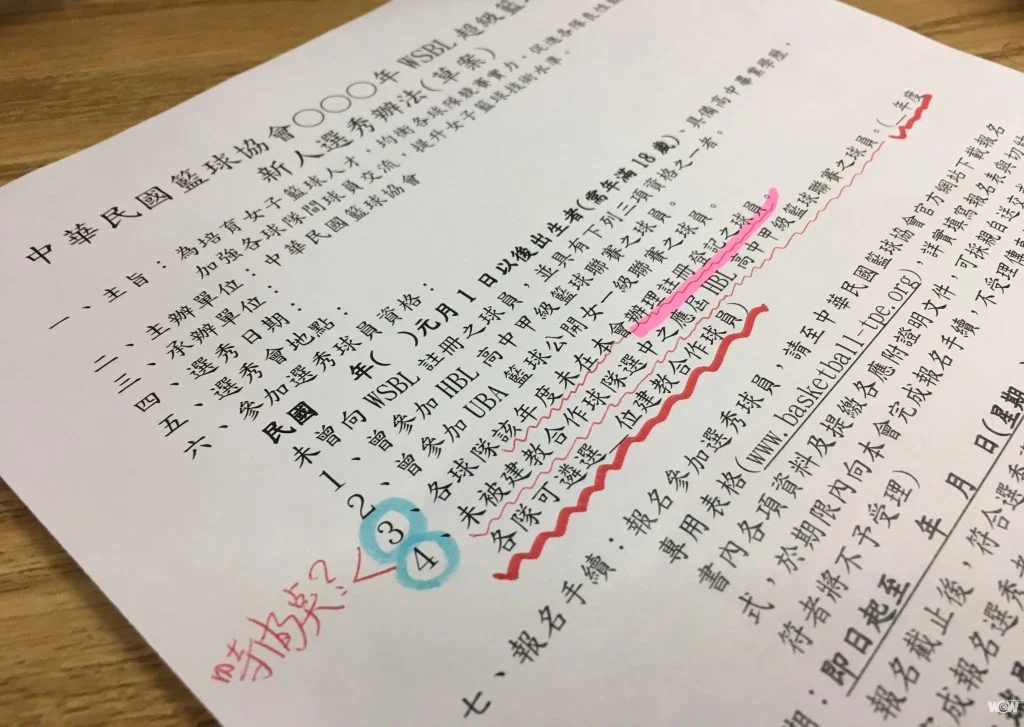 中華民國籃球協會○○○年 WSBL 超級籃
新人選秀辦法(草案)
一、主旨：為培育女子籃球人才，均衡各球隊競賽實力，促進各隊良性
加強各球隊間球員交流，提升女子籃球技術水準。
二、主辦單位：中華民國籃球協會
三、承辦單位：
四、選秀日期：
五、選秀會地點：
六、參加選秀球員資格：
民國 年( )元月1日以後出生者(需年滿18歲)、具備高中畢業學歷，
未曾向 WSBL 註冊之球員，並具有下列三項資格之一者。
1、曾參加 HBL 高中甲級籃球聯賽之球員。
2、曾參加 UBA 籃球公開女一級聯賽之球員。
3、各球隊該年度未在本會辦理註冊登記之球員。
4、未被建教合作球隊選中之應屆 HBL 高中甲級籃球聯賽之球員。(_年度
各隊可遴選_位建教合作球員)
七、報名手續：報名參加選秀球員，請至中華民國籃球協會官方網站下載報名
專用表格(www.basketball-tpe.org)，詳實填寫報名表與切結
書內各項資料及提繳各應附證明文件，可採親自送交
式，於期限內向本會完成報名手續，不受理傳真
符者將不予受理)
期：即日起至 年 月 日(星期
報名截止後，符合選秀
成報名選秀者